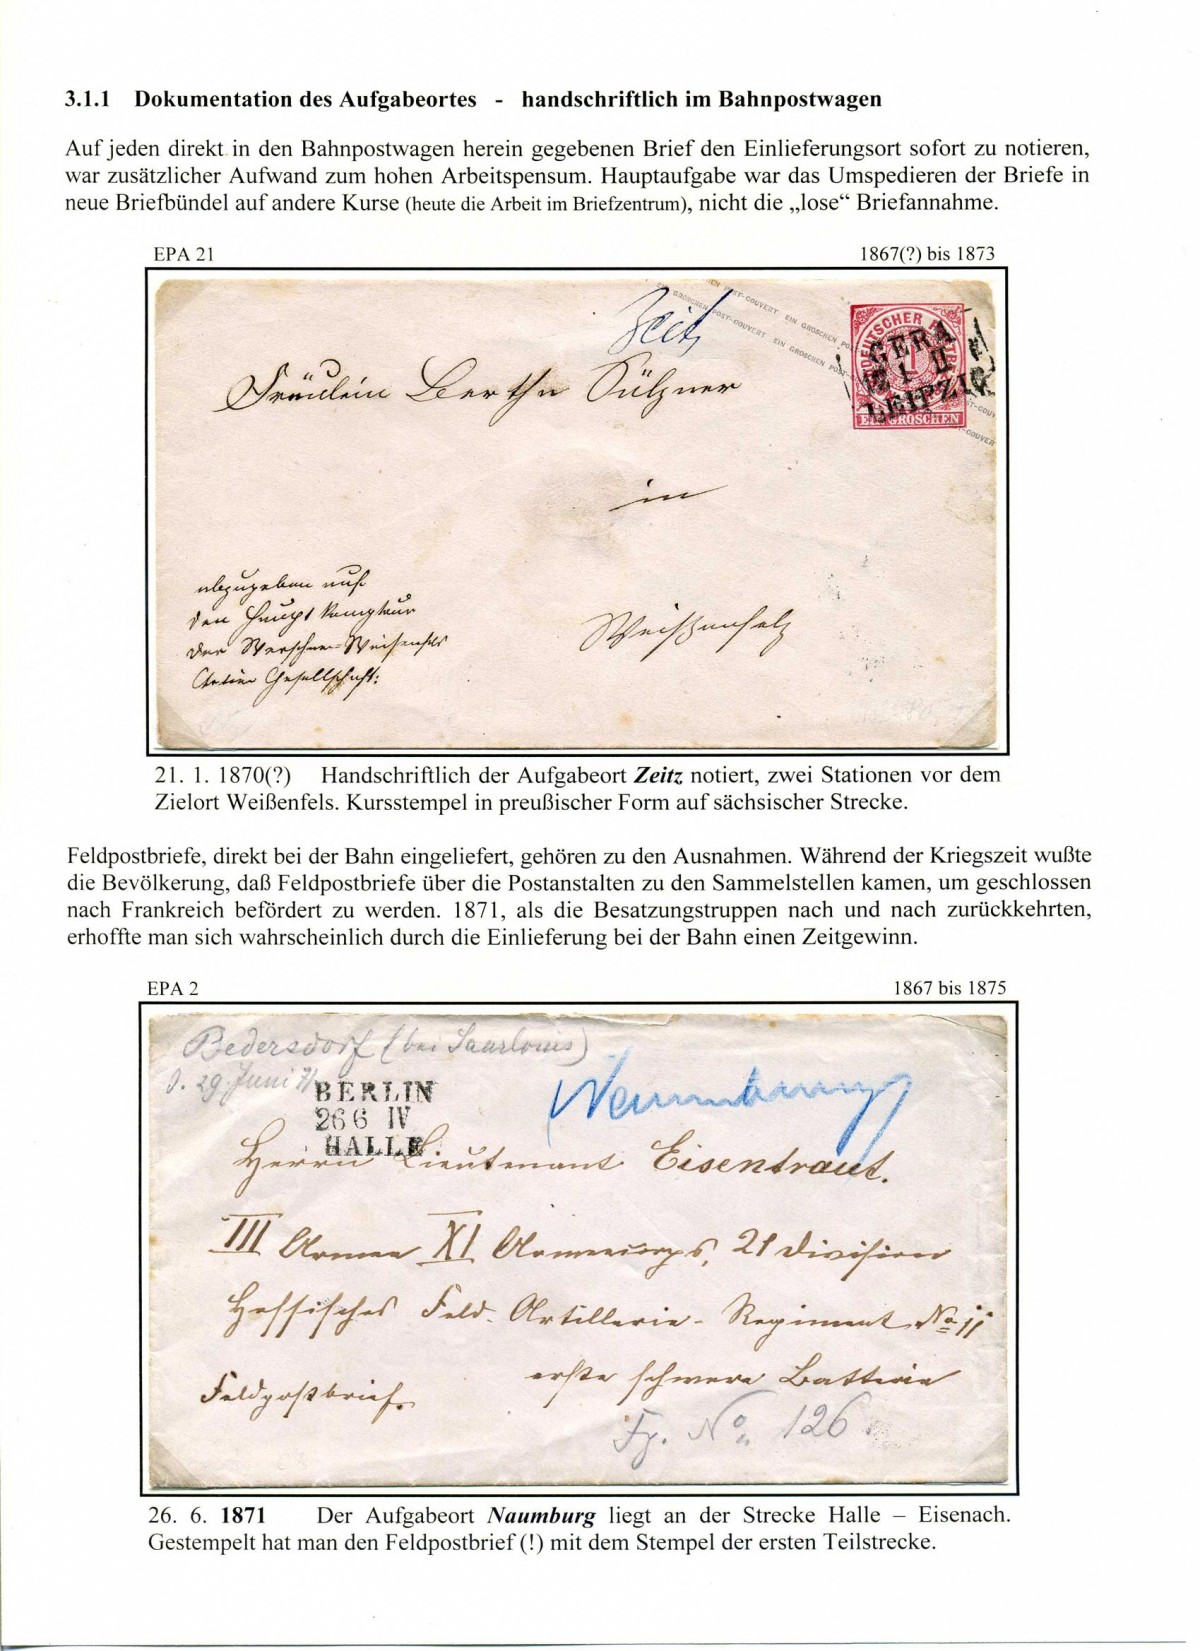 3.1.1 Dokumentation des Aufgabeortes - handschriftlich im Bahnpostwagen
Auf jeden direkt in den Bahnpostwagen herein gegebenen Brief den Einlieferungsort sofort zu notieren,
war zusätzlicher Aufwand zum hohen Arbeitspensum. Hauptaufgabe war das Umspedieren der Briefe in
neue Briefbündel auf andere Kurse (heute die Arbeit im Briefzentrum), nicht die „lose“ Briefannahme.
EPA 21 1867(?) bis 1873
EIN GROSCHEN POST-COUVERT EIN GROSCHEN POST-COUVERT
Zeitz
NORDDEUTSCHER POSTBEZIRK
1
EIN GROSCHEN
GERA
1 II
LEIPZIG
Fräulein Bertha Sülzner
in
Weißenfels
abzugeben auf
den Haupt Comptuir
der Werschen-Weisenfels
Actien Gesellschaft:
21. 1. 1870(?) Handschriftlich der Aufgabeort Zeitz notiert, zwei Stationen vor dem
Zielort Weißenfels. Kursstempel in preußischer Form auf sächsischer Strecke.
Feldpostbriefe, direkt bei der Bahn eingeliefert, gehören zu den Ausnahmen. Während der Kriegszeit wußte
die Bevölkerung, daß Feldpostbriefe über die Postanstalten zu den Sammelstellen kamen, um geschlossen
nach Frankreich befördert zu werden. 1871, als die Besatzungstruppen nach und nach zurückkehrten,
erhoffte man sich wahrscheinlich durch die Einlieferung bei der Bahn einen Zeitgewinn.
EPA 2 1867 bis 1875
Bedersdorf (bei Saarlouis)
d. 29. Juni 71
BERLIN
26 6 IV
HALLE.
Naumburg
Herrn Lieutenant Eisentraut.
III Armee XI Armeecorps, 21 Division
Hessisches Feld-Artillerie-Regiment No 11
erste schwere Batterie
Feldpostbrief.
Fp. No. 126
26. 6. 1871 Der Aufgabeort Naumburg liegt an der Strecke Halle – Eisenach.
Gestempelt hat man den Feldpostbrief (!) mit dem Stempel der ersten Teilstrecke.